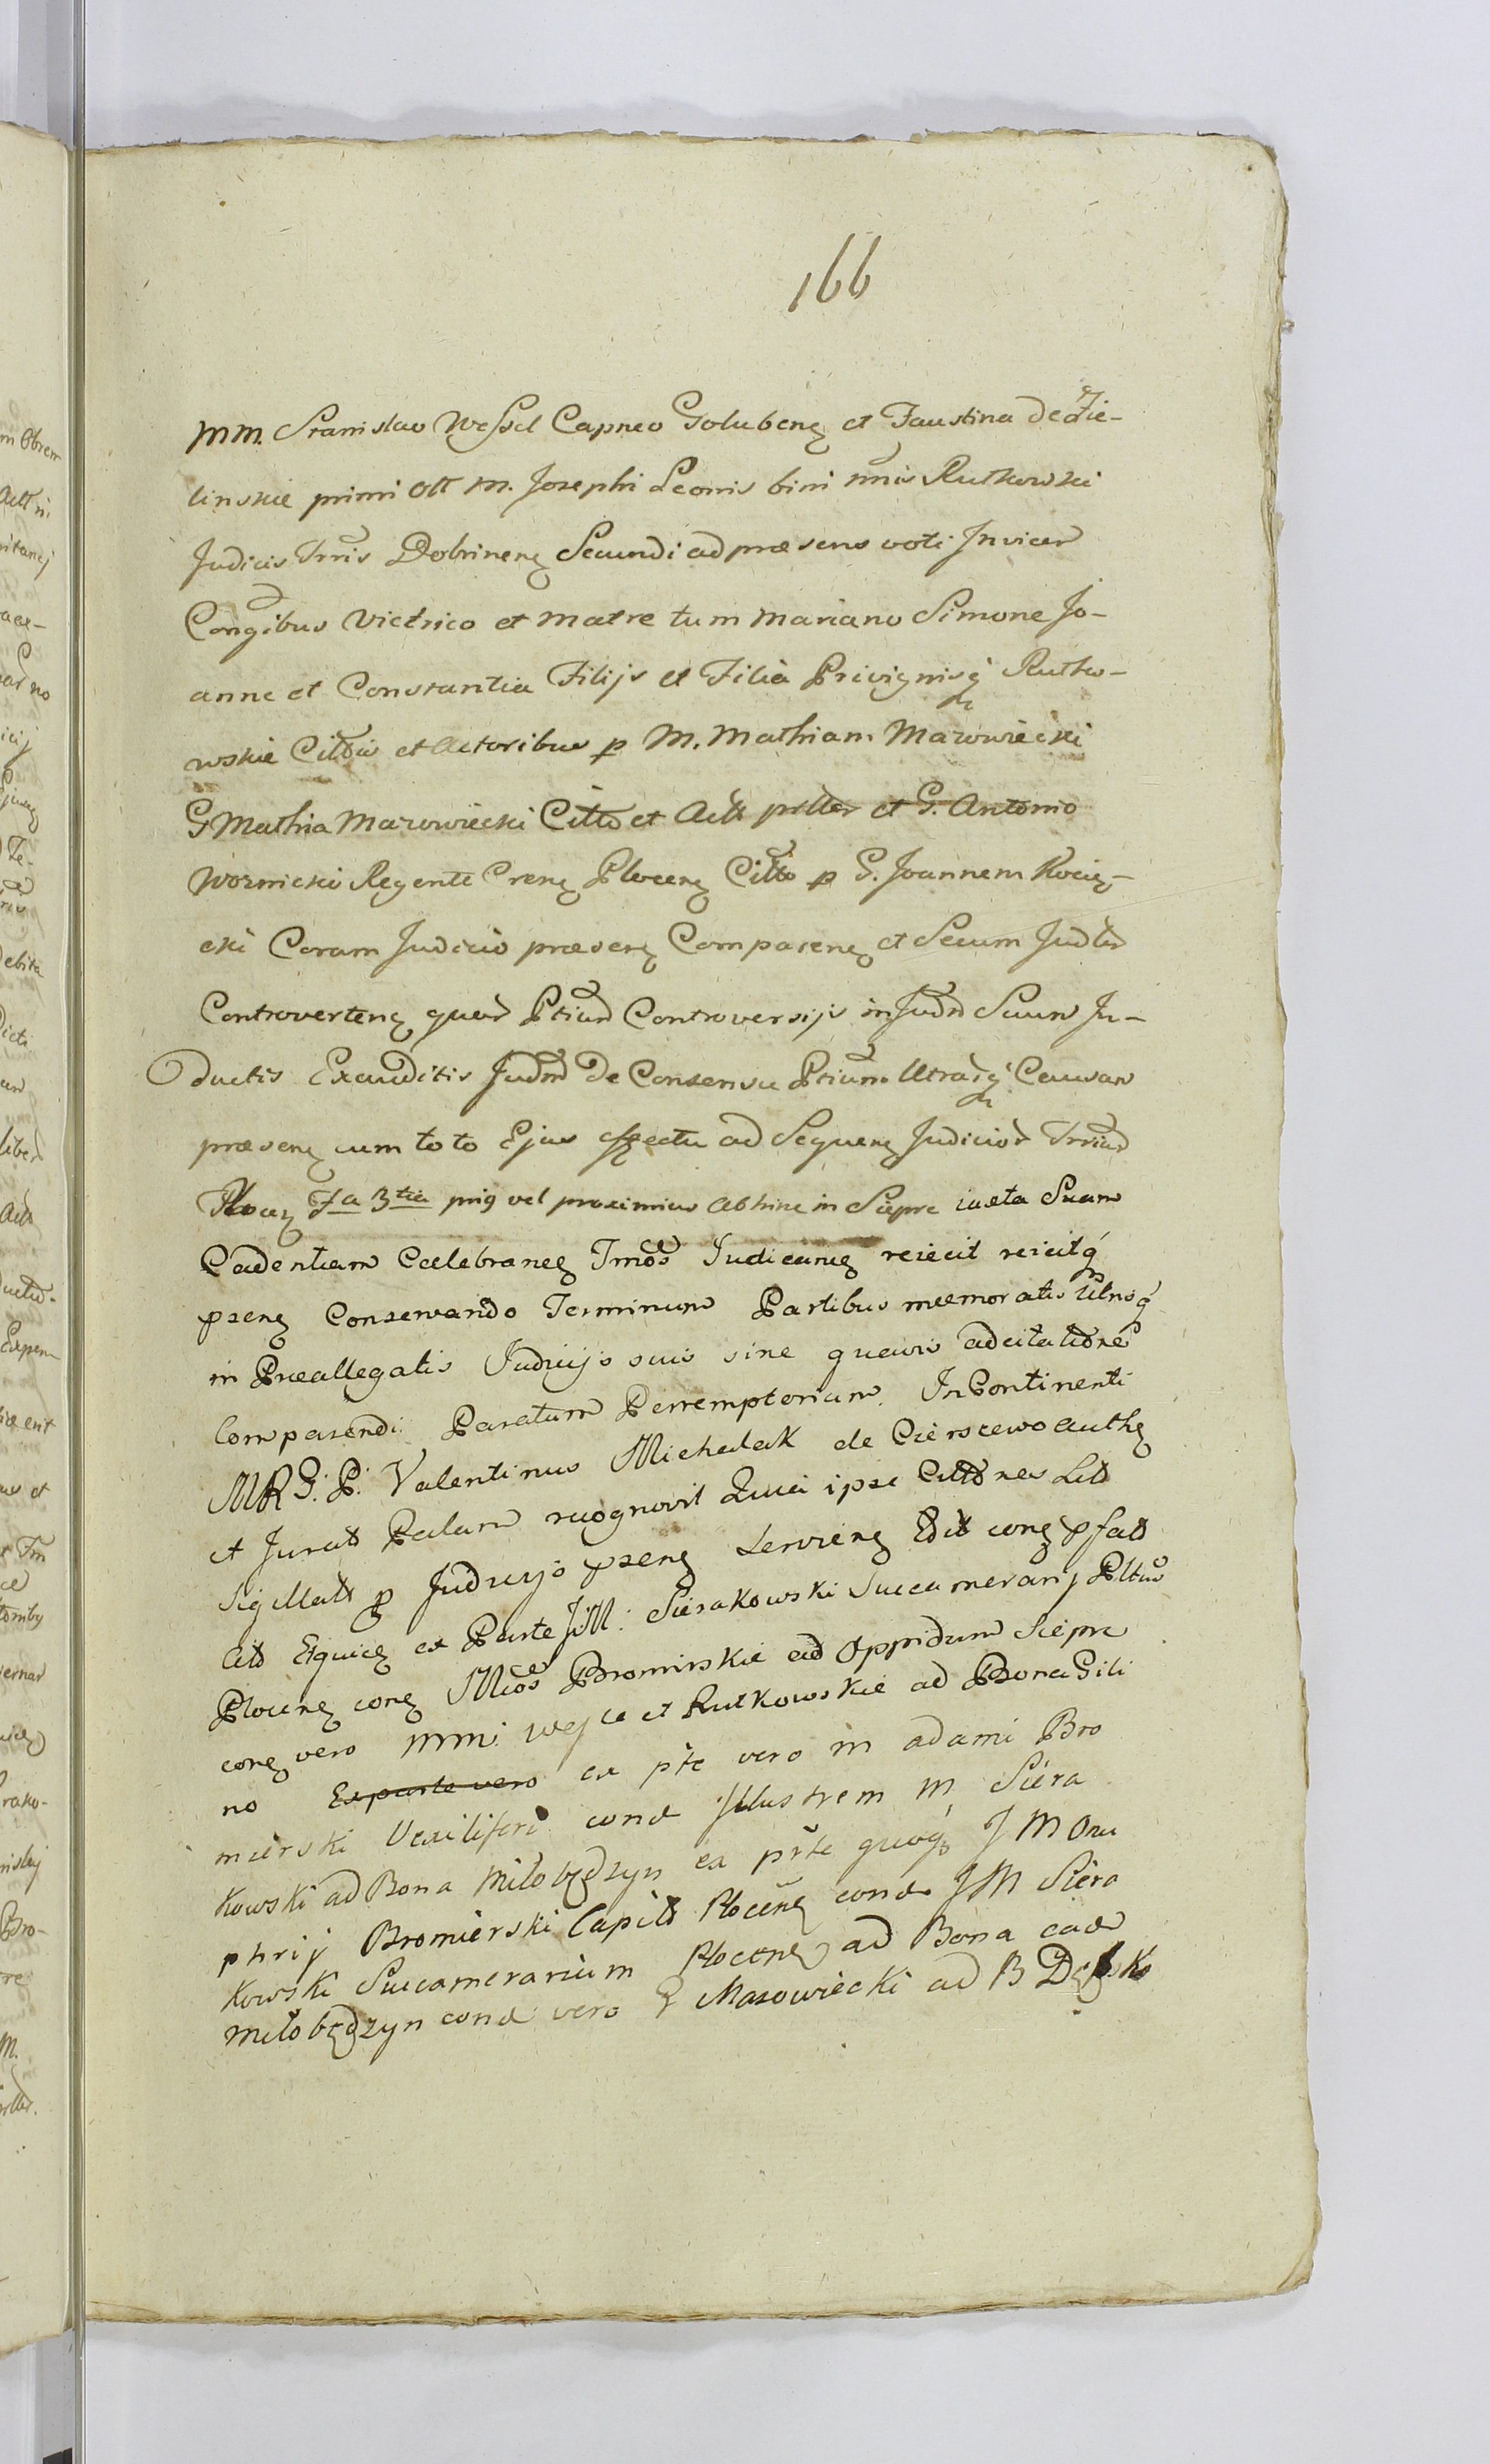 166
MM. Stanislao Wessel Capneo Golubenę et Faustina de Zie-
linskie primi olt M. Josephi Leonis bini nnis Rutkowski
Judicis Trris Dobrinenę Secundi ad præsens voti Invicem
Congibus Victrico et Matre tum Mariano Simone Jo-
anne et Constantia Filijs et Filia Privignisq Rutko-
wskie Cittis et Actoribus p M. Mathiam Mazowiecki
G Mathia Mazowiecki Citto et Actt psltr et G. Antonio
Woznicki Regente Crenę Plocenę Citto p G. Joannem Kocię-
cki Coram Judicio præsenę Comparenę et Secum Judtr
Controvertenę quar Ptium Controversijs in Judm Suum In-
ductis Exauditis Judm De Consensu Ptium Utrarq Causam
præsenę cum toto Ejus effectu ad Sequenę Judicior Trrium
Plocenę Fa 3tia pnig vel proximius abhinc in Siepre iuxta Suam
Cadentiam Cælebranę Tmos Judicanę reiecit reicitq
psenę Conservando Terminum Partibus memoratis Utrisq
in Præallegatis Judicijs suis sine quavis adcitatione
Comparendi Paratum Perremptorium. In Continenti
MRG: P: Valentinus Michalak de Cierszewo authę
et Jurats Palam recognovit Quia ipse Citto nes Litt
Sigillatt p Judicijo psenę Servienę Edit conę psatt
Citt Equicę ex Parte JM: Sierakowski Succamerarij Pltus
Plocenę conę Mcos Bromirskie ad Oppidum Siepre
conę vero MM: Wesle et Rutkowskie ad Bona Gili
no Exparte vero ex pte vero M adami Bro
mierski Vexiliferi conę Illustrem M Siera
kowski ad Bona Miłobędzyn ex pste quoq J M Onu
phrij Bromierski Capitt Plocenę conę J M Siera
kowski Succamerarium Plocenę ad Bona eadę
Miłobędzyn conę vero G Mazowiecki ad B